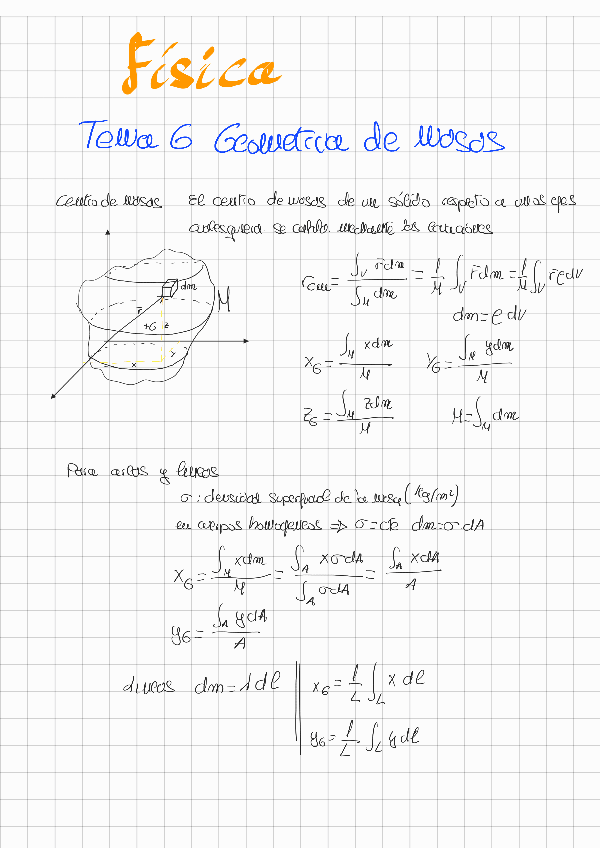 Física
Tema 6 Geometria de Masas
Centro de masas El centro de masas de un sólido respecto a unos ejes
cualesquiera se calcula mediante las ecuaciones
dm
M
r̄
+G z
x y
r̄cm = ∫_V r̄dm / ∫_M dm = 1/M ∫_V r̄dm = 1/M ∫_V r̄ρdv
dm = ρ dv
x_G = ∫_M xdm / M y_G = ∫_M ydm / M
z_G = ∫_M zdm / M M = ∫_M dm
Para areas y lineas
σ: densidad superficial de la masa (kg/m²)
en cuerpos homogeneos ⇒ σ = cte dm = σ dA
x_G = ∫_M xdm / M = ∫_A xσdA / ∫_A σdA = ∫_A xdA / A
y_G = ∫_A ydA / A
Lineas dm = λdl x_G = 1/L ∫_L x dl
y_G = 1/L · ∫_L y dl